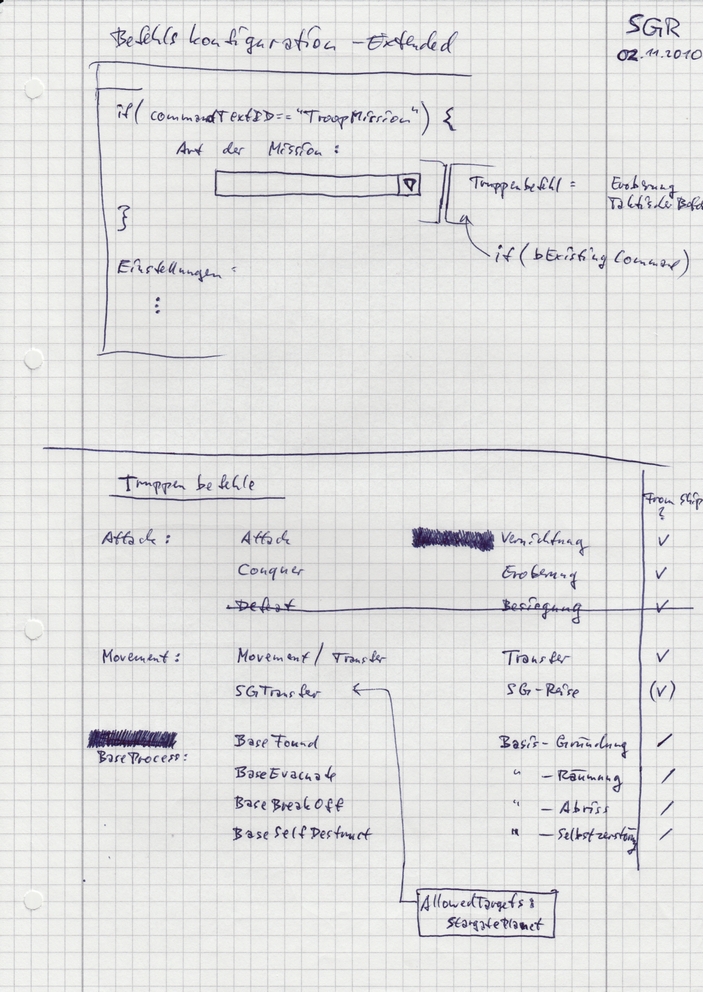 Befehlskonfiguration - Extended
SGR
02.11.2010
if( commandTextID == "TroopMission" ) {
Art der Mission :
Truppenbefehl = Eroberung
Taktischer Befehl
}
if ( bExisting Command )
Einstellungen :
⋮
Truppenbefehle
From Ship
?
Attack : Attack Vernichtung ✓
Conquer Eroberung ✓
Defeat Besiegung ✓
Movement : Movement / Transfer Transfer ✓
SGTransfer SG-Reise (✓)
BaseFound Basis - Gründung /
BaseProcess :
BaseEvacuate " - Räumung /
BaseBreakOff " - Abriss /
BaseSelfDestruct " - Selbstzerstörung /
AllowedTargets :
StargatePlanet